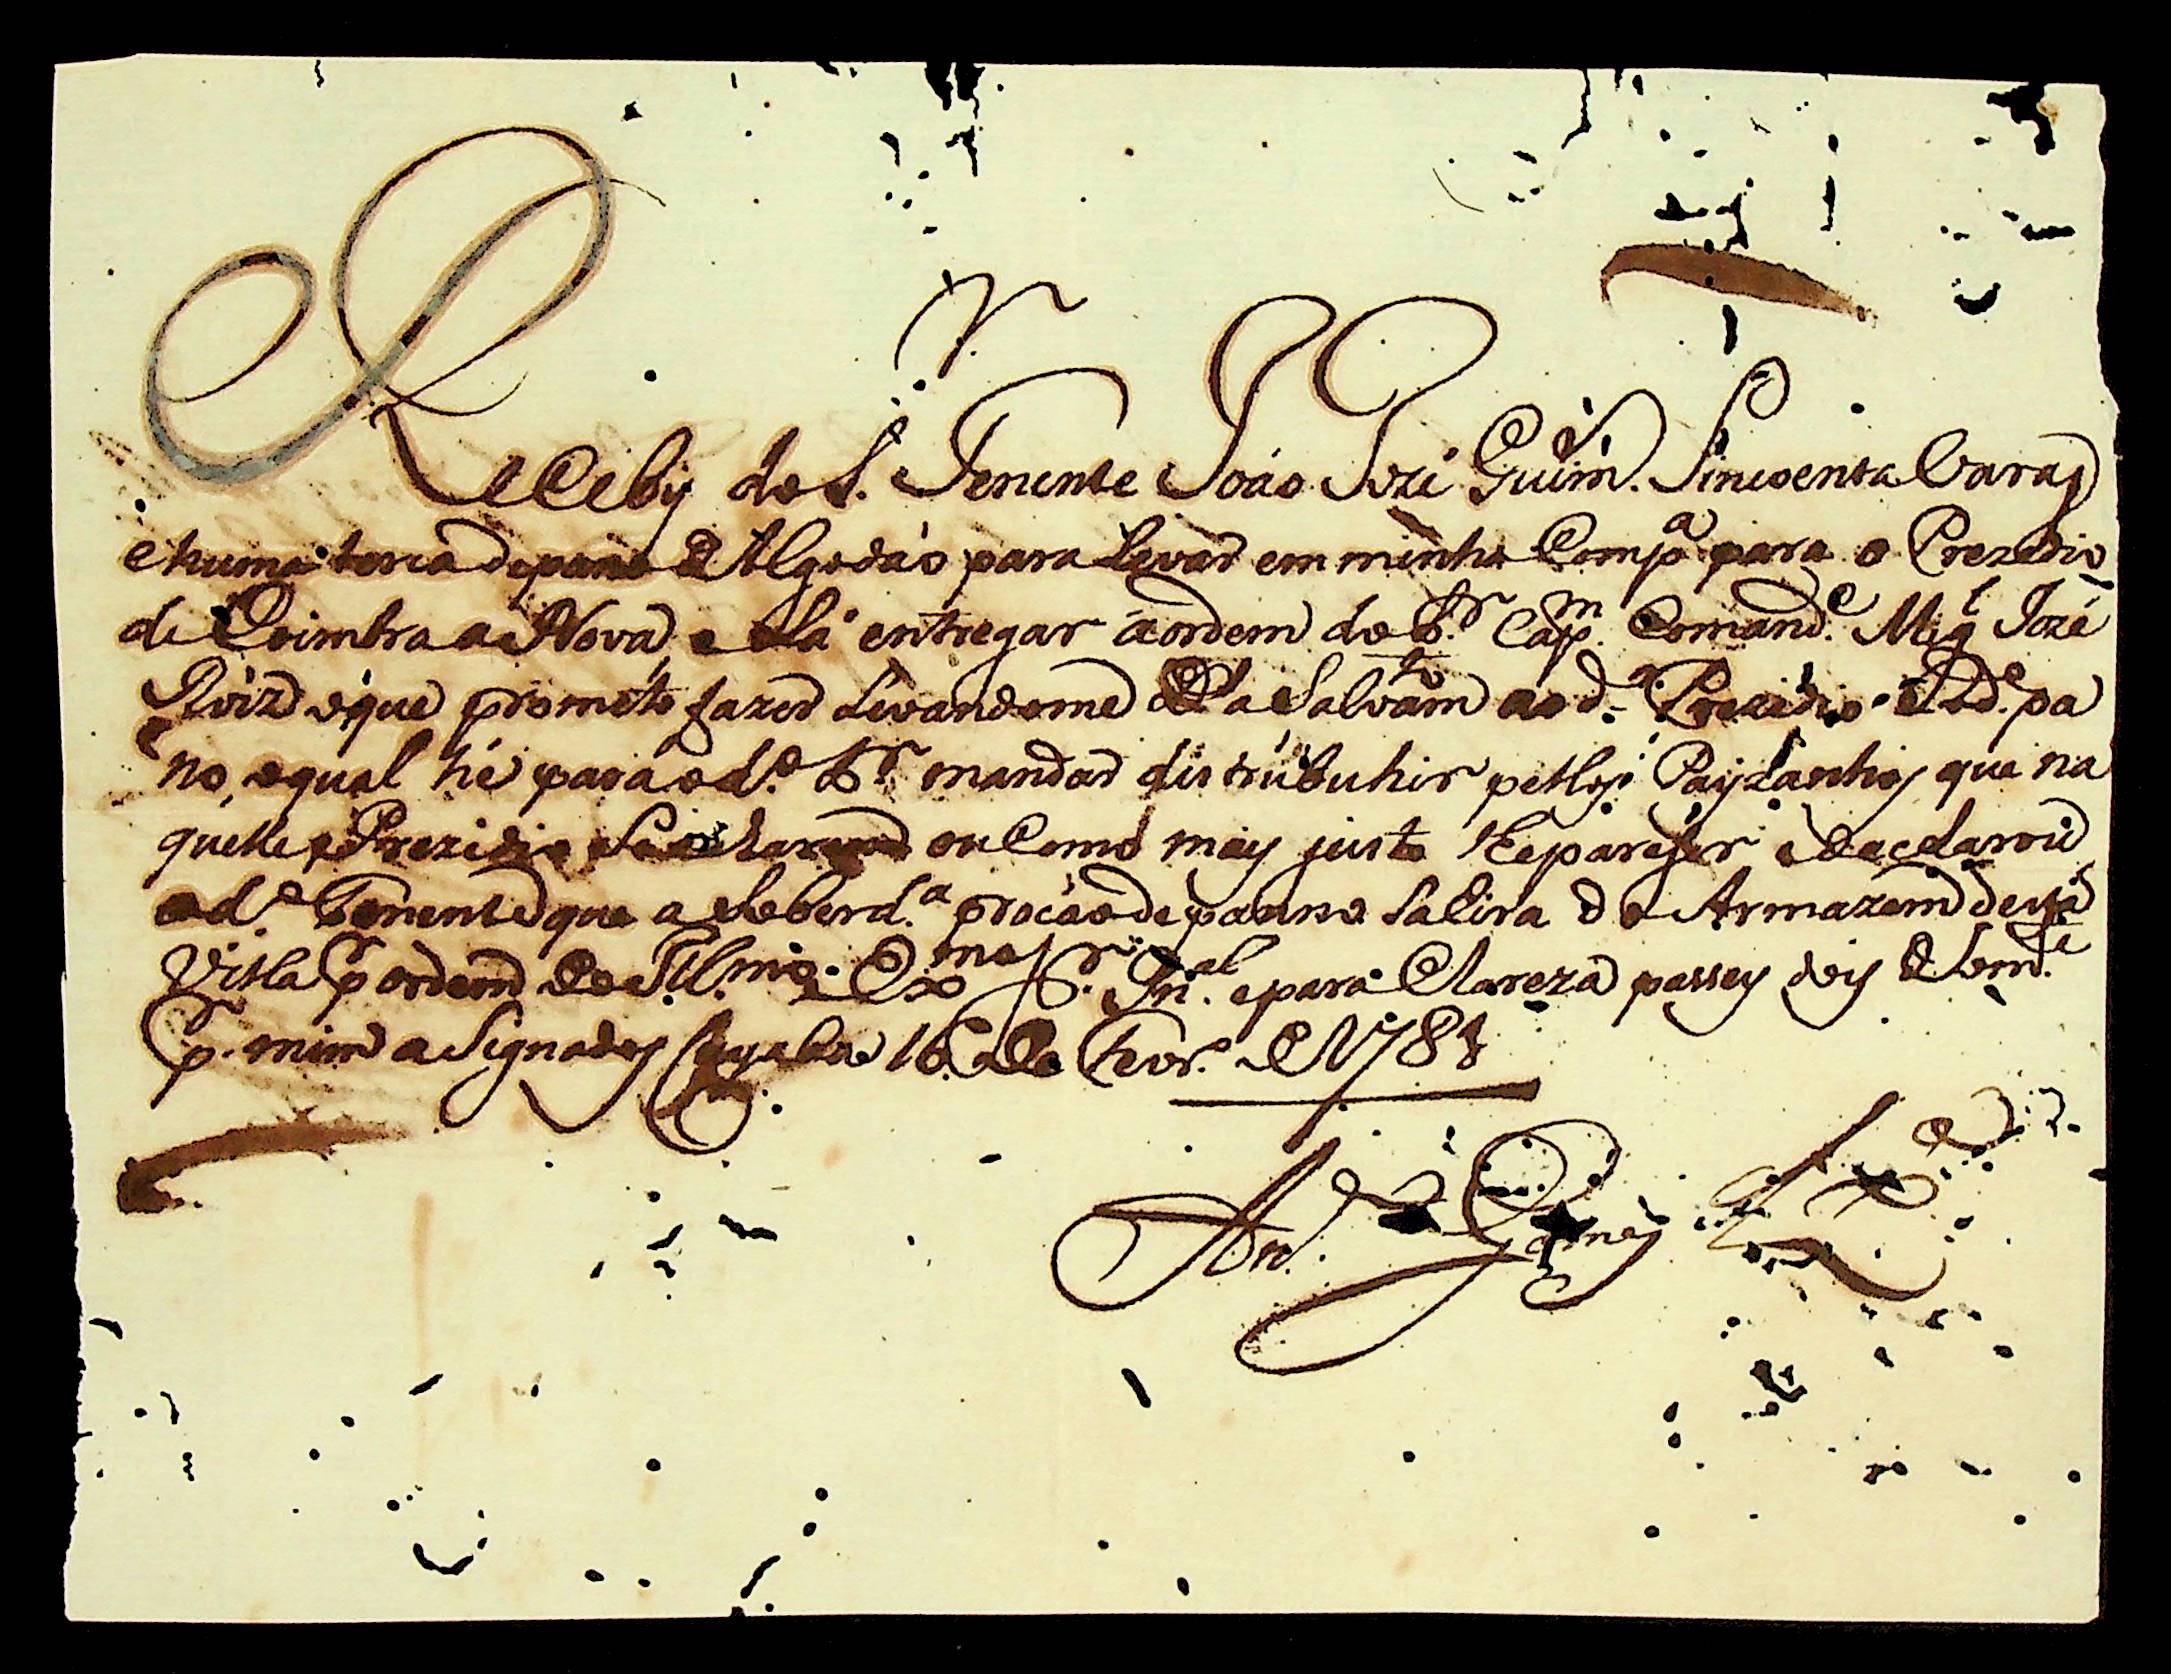 Receby do S.r Tenente João Jozé Guim.s Sincoenta Varas
e huma terca de pano de Algodáo para Levar em minha Comp.a para o Prezidio
de Coimbra a Nova e Lá entregar á ordem do S.r Cap.m Comand.e Mig.l Jozé
Roiz' o que prometo fazer Levandome D.s a Salvam.to ao d.o Prezidio e o d.o pa
no, o qual hé para o d.o S.r mandar distribuhir pellos Payzanhos que na
quelle Prezidio se acharem ou Como mais justo lhe parecer e declarou
o d.o Tenente que a sobred.a porcáo de panno sahira do Armazem desta
Villa p.r ordem do Ill.mo e Ex.mo S.r G.al e para Clareza passey dois de hum
p.r mim a Signados Cuyaba 16 de Fevr.o de 178
An.to Gomes